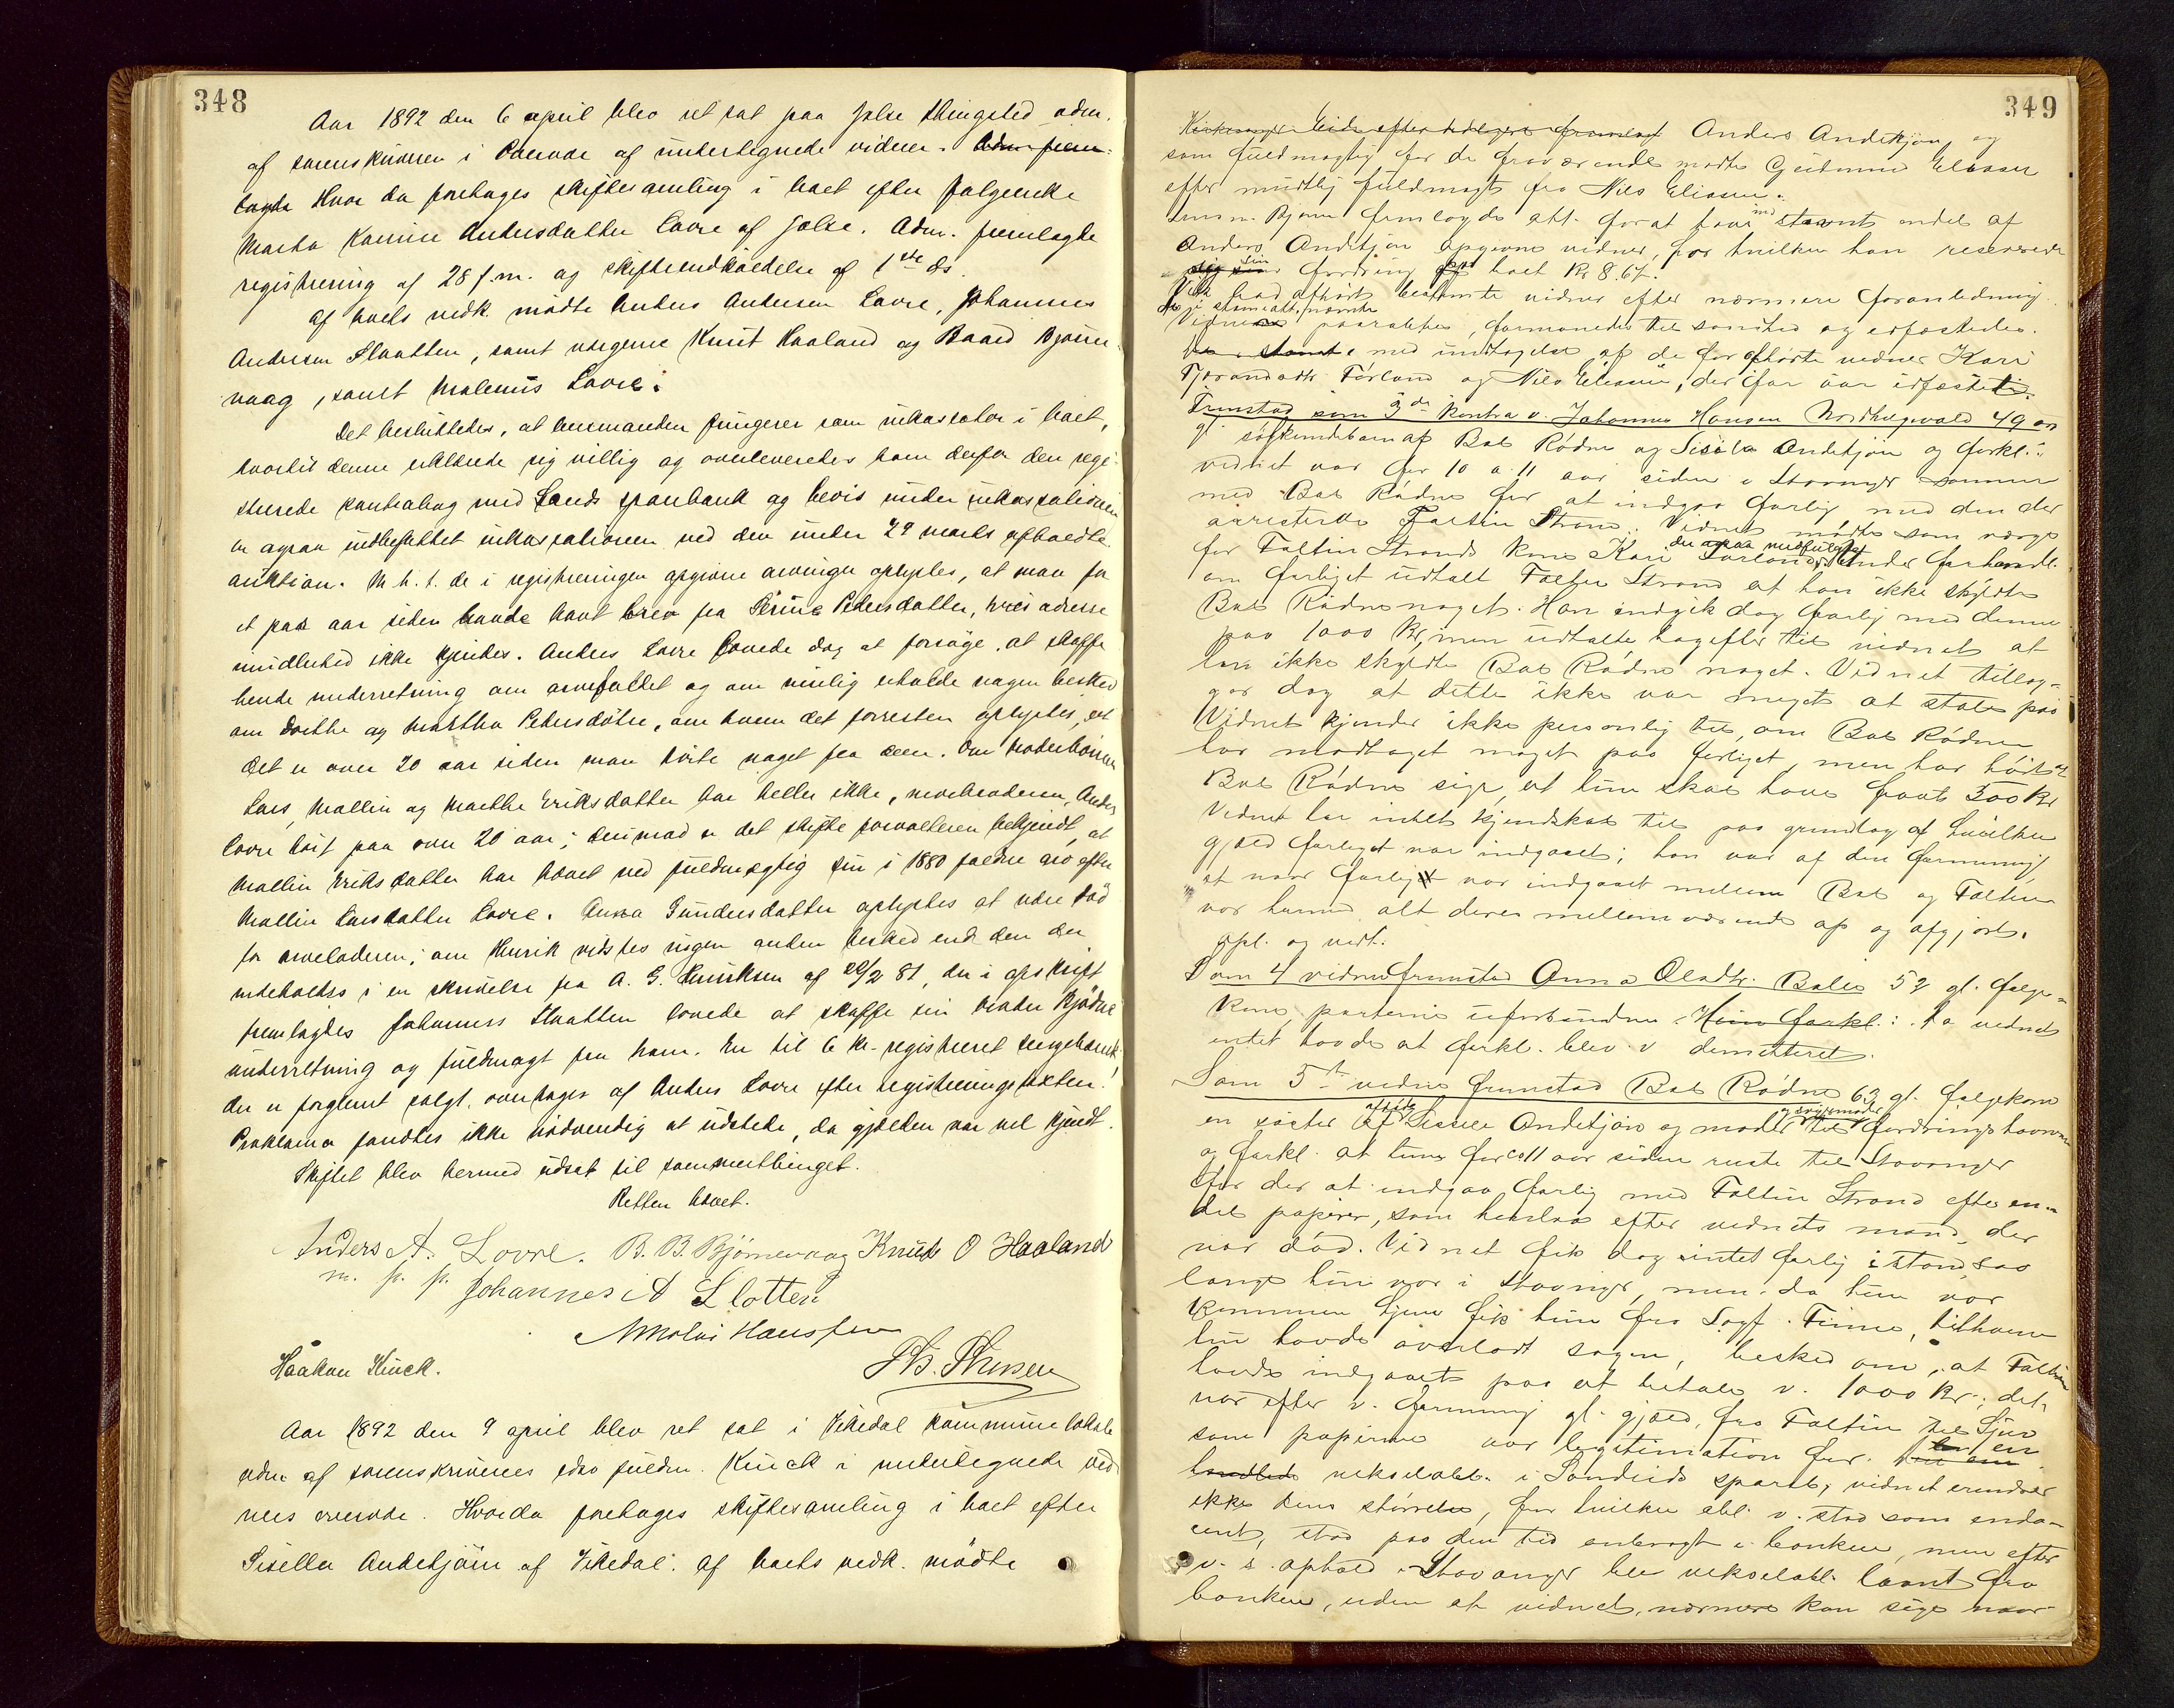 348
Aar 1892 den 6 april blev ret sat paa Jelse thingsted adm.
af sorenskriveren i overvær af undertegnede vidner. Adm. frem-
lagde Hvor da foretages skiftesamling i boet efter følgende
Marta Karine Andersdatter Lovre af Jelse. Adm. fremlagte
registrering af 28 f.m. og skifteindkaldelse af 1ste ds.
Af boets vedk. mødte Anders Andersen Lovre, Johannes
Andersen Slaatten, samt vergerne Knut Haaland og Baard Bjørne-
vaag, samt Malenus Lovre.
Det besluttedes, at lensmanden fungerer som inkassator i boet,
hvortil denne erklærede sig villig og overleveredes ham derfor den regi-
strerede kontrabog med Sands sparebank og bevis under inkassationen
er ogsaa indbefattet inkassationen ved den under 29 marts afholdte
auktion. M. h. t. de i registreringen opgivne arvinger oplystes, at man for
et par aar siden havde havt brev fra Serine Pedersdatter, hvis adresse
imidlertid ikke kjendes. Anders Lovre lovede dog at forsøge at skaffe
hende underretning om arvefaldet og om mulig erholde nogen besked
om Dorthe og Martha Pedersdøtre, om hvem det forresten oplystes, at
det er over 20 aar siden man hørte noget fra dem. Om broderbørnene
Lars, Mallin og Marthe Eriksdatter har heller ikke, morbroderen, Anders
Lovre hørt paa over 20 aar; derimod er det skifteforvalteren bekjendt, at
Mallin Eriksdatter har hævet ved fuldmægtig sin i 1880 faldne arv efter
Mallin Larsdatter Lovre. Anna Gundersdatter oplystes at være død
før arveladeren; om Henrik vidstes ingen anden besked end den der
indeholdes i en skrivelse fra A. G. Henriksen af 26/2 81, der i afskrift
fremlagdes Johannes Slaatten lovede at skaffe sin broder Bjødne
underretning og fuldmagt fra ham. En til 6 kr. registreret sengebænk,
der er forglemt solgt. overtages af Anders Lovre efter registreringstaxten.
Proklama fandtes ikke nødvendig at udstede, da gjælden var vel kjendt.
Skiftet blev hermed udsat til sommerthinget.
Retten hævet.
Anders A. Lovre. B. B. Bjørnevaag Knud O Haaland
m. p. p. Johannes A Slotten
Nikolai Hanssen
Haakon Kinck. Th. Thusen
Aar 1892 den 9 april blev ret sat i Vikedal kommunelokale
adm af sorenskriverens edsv fuldm. Kinck i undertegnede vid-
ners overvær. Hvorda foretages skiftesamling i boet efter
Sisella Andetjøn af Vikedal. af boets vedk. mødte
349
Anders Andetjøn, og
som fuldmægtig for de fraværende mødte Gudmund Eliassen
efter mundtlig fuldmagt fra Nils Eliassen.
Lensm. Bjørn fremlagde att. for at have indstævnt endel af
Anders Andetjøn opgivne vidner, for hvilken han reserverede
sig sin fordring paa boet kr 8.67.
afhørt bestemte vidner efter nærmere foranledning.
de i stævn.att. nævnte
Vidnerne paaraabtes, formanedes til sandhed og edfæstedes.
med undtagelse af de før afhørte vidner Kari
Tjerandsdtr. Førland og Nils Eliassen, der før var edfæstede.
Fremstod som 3de kontra v. Johannes Hansen Nordhugvald 49 aar
gl. søskendebarn af Bol Rødne og Sisela Andetjøn og forkl.:
vidnet var for 10 a 11 aar siden i Stavanger sammen
med Bol Rødne for at indgaa forlig med den der
arresterede Foltin Strand. Vidnet mødte som værge
for Foltin Strands kone Kari Førland, der ogsaa medfulgte. Under forhandl.
om forliget udtalte Foltin Strand at han ikke skyldte
Bol Rødne noget. Han indgik dog forlig med denne
paa 1000 kr, men udtalte bagefter til vidnet at
han ikke skyldte Bol Rødne noget. Vidnet tillag-
ger dog at dette ikke var noget at stole paa
Vidnet kjender ikke personlig til, om Bol Rødne
har modtaget noget paa forliget, men har hørt af
Bol Rødne sige, at hun skal have faaet 300 kr
Vidnet har intet kjendskab til paa grundlag af hvilken
gjæld forliget var indgaaet; han var af den formening,
at naar forliget var indgaaet mellem Bol og Foltin
var hermed alt deres mellemværende op og afgjort.
Opl. og vedt.
Som 4 vidne fremstod Anna Olsdtr. Bolie 52 gl. folge-
kone, parterne uforbunden. Hun forkl.: Da vidnet
intet havde at forkl. blev v demitteret.
Som 5te vidne fremstod Bol Rødne 63 gl. folgekone
en søster af afdøde Sissele Andetjøn og moder og svigermoder til fordringshaverne
og forkl. at hun for ca 11 aar siden reiste til Stavanger
for der at indgaa forlig med Foltin Strand efter en-
del papirer, som henlaa efter vidnets mand, der
var død. Vidnet fik dog intet forlig istand, saa
længe hun var i Stavanger, men da hun var
kommen hjem fik hun fra Sagf. Finne, tilhvem
hun havde overladt sagen, besked om, at Foltin
havde indgaaet paa at betale v. 1000 kr.; det
var efter v. formening gl. gjæld, fra Foltin til Sjur
som papirerne var legitimation for. en
vekselobl. i Sandeids spareb, vidnet erindrer
ikke dens størrelse, for hvilken obl. v. stod som endo-
sent, stod paa den tid anbragt i banken, men efter
v. s. ophold i Stavanger blev vekselobl. laant fra
banken, uden at vidnet nærmere kan sige naar